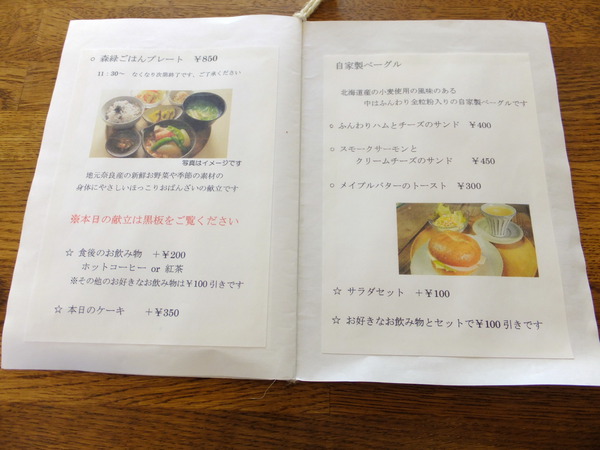 ○ 森緑ごはんプレート ￥850
11：30～ なくなり次第終了です。ご了承ください
写真はイメージです
地元奈良産の新鮮お野菜や季節の素材の
身体にやさしいほっこりおばんざいの献立です
※本日の献立は黒板をご覧ください
☆ 食後のお飲み物 ＋￥200
ホットコーヒー or 紅茶
※その他のお好きなお飲み物は￥100引きです
☆ 本日のケーキ ＋￥350
自家製ベーグル
北海道産の小麦使用の風味のある
中はふんわり全粒粉入りの自家製ベーグルです
○ ふんわりハムとチーズのサンド ￥400
○ スモークサーモンと
クリームチーズのサンド ￥450
○ メイプルバターのトースト ￥300
☆ サラダセット ＋￥100
☆ お好きなお飲み物とセットで￥100引きです